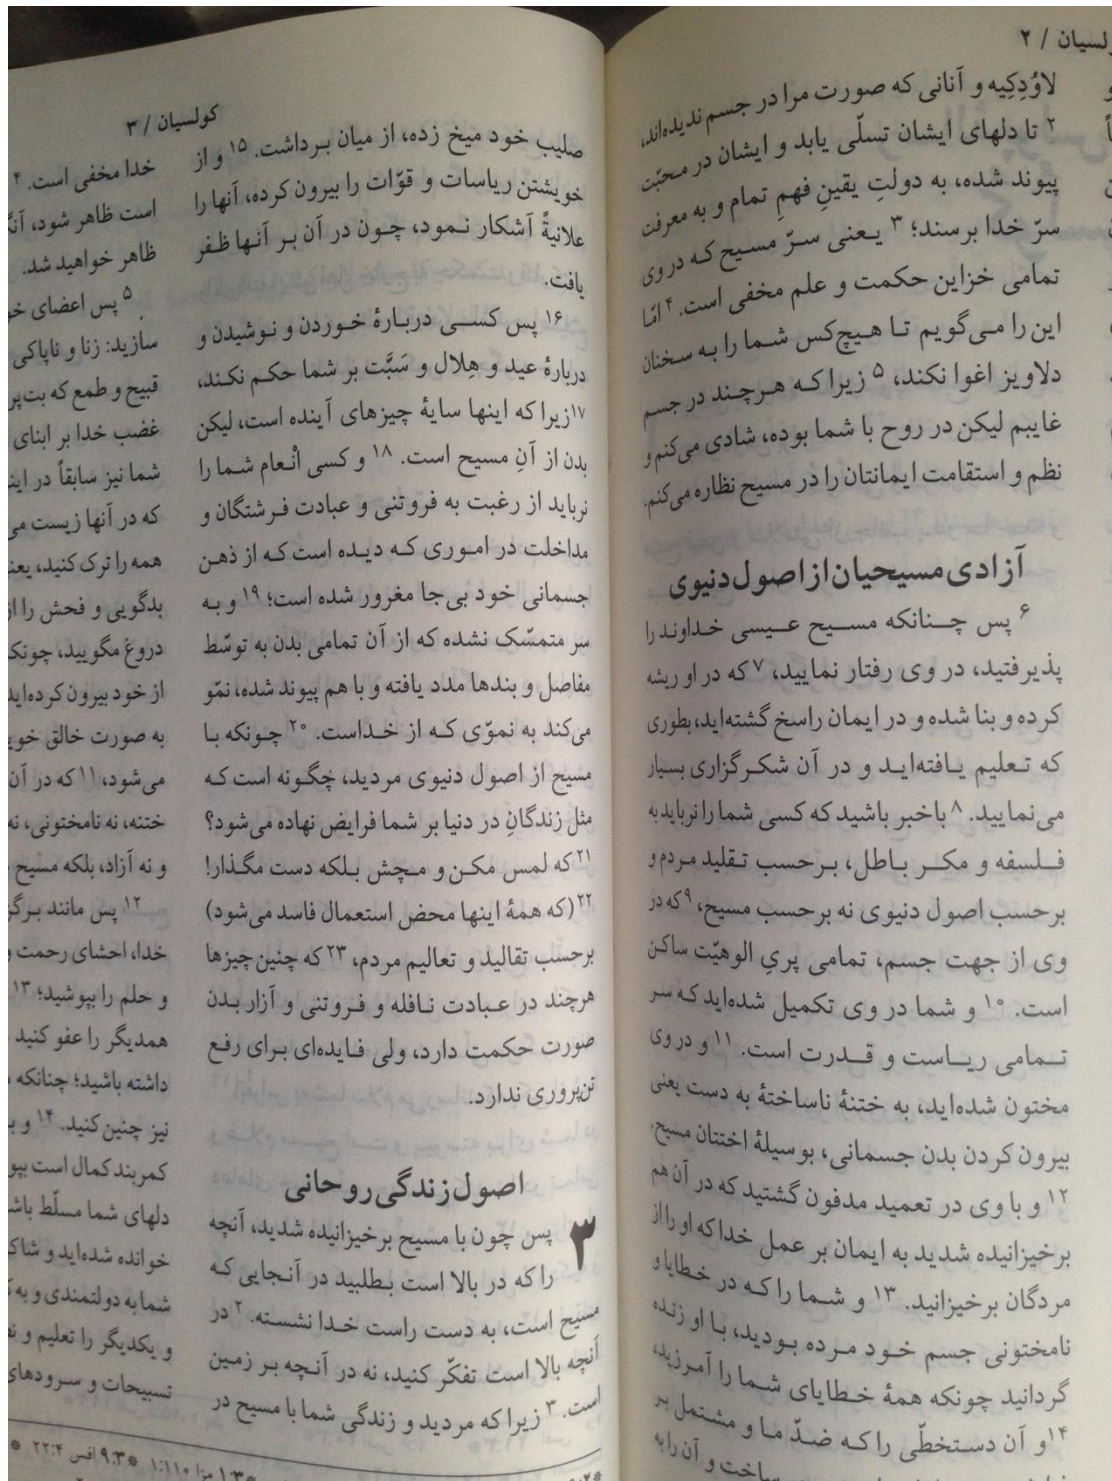 کولسیان / ۲
لاوُدِکِیه و آنانی که صورت مرا در جسم ندیده‌اند،
۲ تا دلهای ایشان تسلّی یابد و ایشان در محبّت
پیوند شده، به دولتِ یقینِ فهمِ تمام و به معرفت
سرّ خدا برسند؛ ۳ یعنی سرّ مسیح که در وی
تمامی خزاین حکمت و علم مخفی است. ۴ امّا
این را می‌گویم تا هیچ‌کس شما را به سخنان
دلاویز اغوا نکند، ۵ زیرا که هرچند در جسم
غایبم لیکن در روح با شما بوده، شادی می‌کنم و
نظم و استقامت ایمانتان را در مسیح نظاره می‌کنم.
آزادی مسیحیان از اصول دنیوی
۶ پس چنانکه مسیح عیسی خداوند را
پذیرفتید، در وی رفتار نمایید، ۷ که در او ریشه
کرده و بنا شده و در ایمان راسخ گشته‌اید، بطوری
که تعلیم یافته‌اید و در آن شکرگزاری بسیار
می‌نمایید. ۸ باخبر باشید که کسی شما را نرباید به
فلسفه و مکر باطل، برحسب تقلید مردم و
برحسب اصول دنیوی نه برحسب مسیح، ۹ که در
وی از جهت جسم، تمامی پریِ الوهیّت ساکن
است. ۱۰ و شما در وی تکمیل شده‌اید که سر
تمامی ریاست و قدرت است. ۱۱ و در وی
مختون شده‌اید، به ختنهٔ ناساختهٔ به دست یعنی
بیرون کردن بدن جسمانی، بوسیلهٔ اختتان مسیح.
۱۲ و با وی در تعمید مدفون گشتید که در آن هم
برخیزانیده شدید به ایمان بر عمل خدا که او را از
مردگان برخیزانید. ۱۳ و شما را که در خطایا و
نامختونی جسم خود مرده بودید، با او زنده
گردانید چونکه همهٔ خطایای شما را آمرزید،
۱۴ و آن دستخطّی را که ضدّ ما و مشتمل بر
ساخت و آن را به
کولسیان / ۳
صلیب خود میخ زده، از میان برداشت. ۱۵ و از
خویشتن ریاسات و قوّات را بیرون کرده، آنها را
علانیةً آشکار نمود، چون در آن بر آنها ظفر
یافت.
۱۶ پس کسی دربارهٔ خوردن و نوشیدن و
دربارهٔ عید و هِلال و سَبَّت بر شما حکم نکند،
۱۷ زیرا که اینها سایهٔ چیزهای آینده است، لیکن
بدن از آنِ مسیح است. ۱۸ و کسی انْعام شما را
نرباید از رغبت به فروتنی و عبادت فرشتگان و
مداخلت در اموری که دیده است که از ذهن
جسمانی خود بی‌جا مغرور شده است؛ ۱۹ و به
سر متمسّک نشده که از آن تمامی بدن به توسّط
مفاصل و بندها مدد یافته و با هم پیوند شده، نمّو
می‌کند به نموّی که از خداست. ۲۰ چونکه با
مسیح از اصول دنیوی مردید، چگونه است که
مثل زندگانِ در دنیا بر شما فرایض نهاده می‌شود؟
۲۱ که لمس مکن و مچش بلکه دست مگذار!
۲۲ (که همهٔ اینها محض استعمال فاسد می‌شود)
برحسب تقالید و تعالیم مردم، ۲۳ که چنین چیزها
هرچند در عبادت نافله و فروتنی و آزار بدن
صورت حکمت دارد، ولی فایده‌ای برای رفع
تن‌پروری ندارد.
اصول زندگی روحانی
۳ پس چون با مسیح برخیزانیده شدید، آنچه
را که در بالا است بطلبید در آنجایی که
مسیح است، به دست راست خدا نشسته. ۲ در
آنچه بالا است تفکّر کنید، نه در آنچه بر زمین
است. ۳ زیرا که مردید و زندگی شما با مسیح در
خدا مخفی است. ۴
است ظاهر شود، آنگ
ظاهر خواهید شد.
۵ پس اعضای خو
سازید: زنا و ناپاکی
قبیح و طمع که بت‌پر
غضب خدا بر ابنای
شما نیز سابقاً در این
که در آنها زیست می
همه را ترک کنید، یعن
بدگویی و فحش را از
دروغ مگویید، چونک
از خود بیرون کرده‌اید
به صورت خالق خوی
می‌شود، ۱۱ که در آن
ختنه، نه نامختونی، نه
و نه آزاد، بلکه مسیح
۱۲ پس مانند برگز
خدا، احشای رحمت و
و حلم را بپوشید؛ ۱۳
همدیگر را عفو کنید
داشته باشید؛ چنانکه
نیز چنین کنید. ۱۴ و ب
کمربند کمال است بپو
دلهای شما مسلّط باش
خوانده شده‌اید و شاک
شما به دولتمندی و به
و یکدیگر را تعلیم و نص
تسبیحات و سرودهای
*۱:۳ مزا ۱:۱۱۰ *۹:۳ افس ۲۲:۴